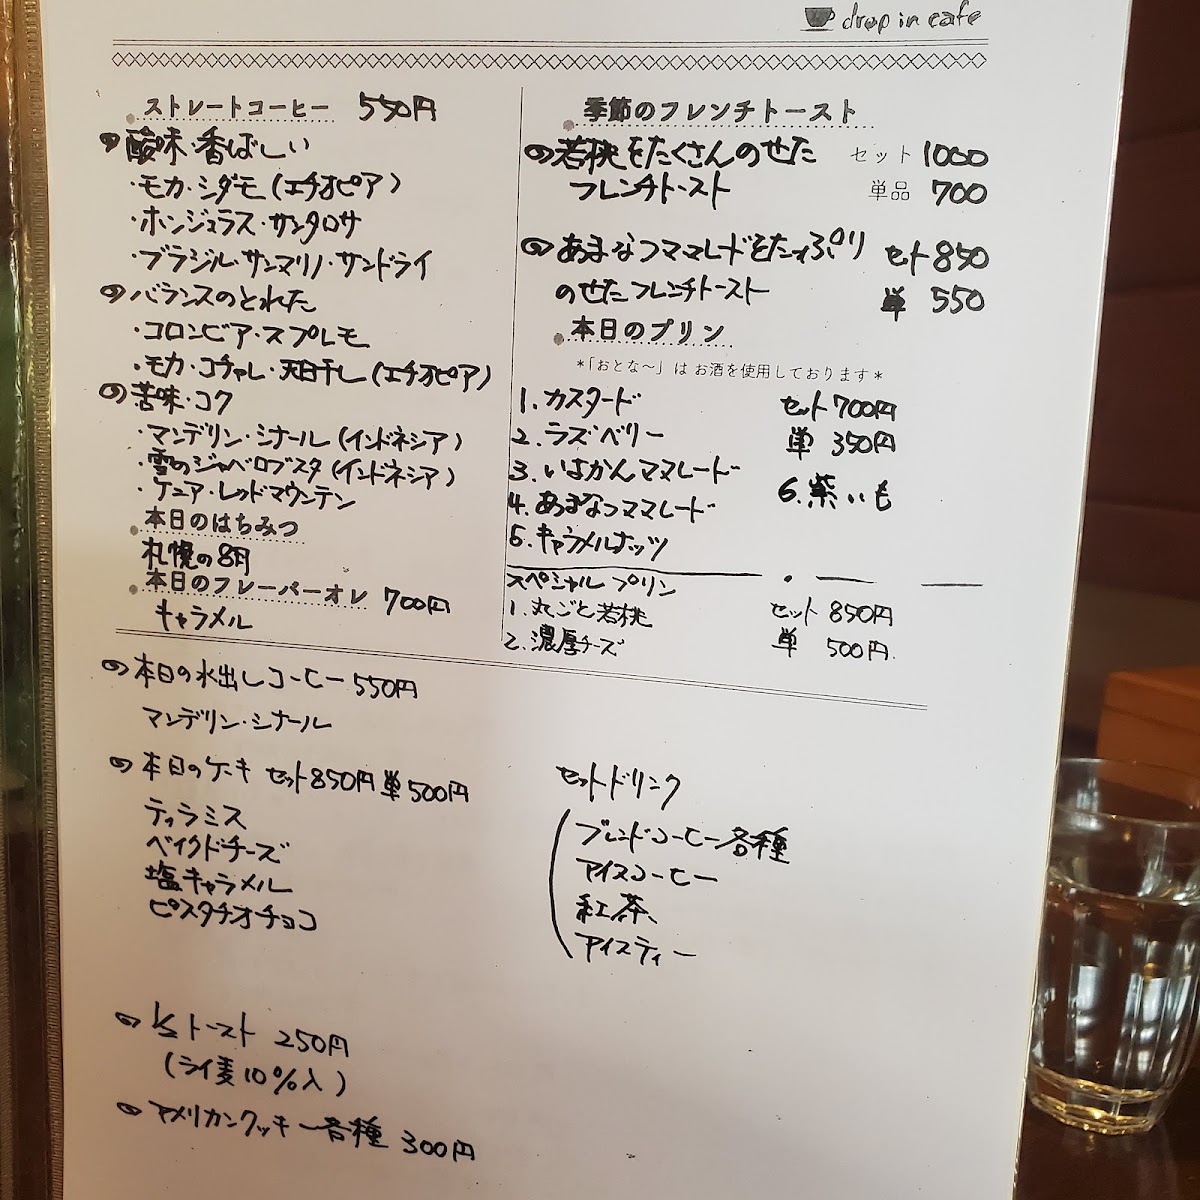 drop in cafe
ストレートコーヒー 550円
酸味・香ばしい
・モカ・シダモ(エチオピア)
・ホンジュラス・サンタロサ
・ブラジル・サンマリノ・サンドライ
バランスのとれた
・コロンビア・スプレモ
・モカ・コチャレ・天日干し(エチオピア)
苦味・コク
・マンデリン・シナール(インドネシア)
・雪のジャベロブスタ(インドネシア)
・ケニア・レッドマウンテン
本日のはちみつ
札幌の8月
本日のフレーバーオレ 700円
キャラメル
季節のフレンチトースト
若桃をたくさんのせた セット 1000
フレンチトースト 単品 700
あまなつママレードをたっぷり セット 850
のせたフレンチトースト 単 550
本日のプリン
*「おとな〜」は お酒を使用しております*
1. カスタード セット 700円
2. ラズベリー 単 350円
3. いよかんママレード
4. あまなつママレード 6. 紫いも
5. キャラメルナッツ
スペシャル プリン
1. 丸ごと若桃 セット 850円
2. 濃厚チーズ 単 500円
本日の水出しコーヒー 550円
マンデリン・シナール
本日のケーキ セット850円 単500円
ティラミス
ベイクドチーズ
塩キャラメル
ピスタチオチョコ
セットドリンク
ブレンドコーヒー各種
アイスコーヒー
紅茶
アイスティー
1/2トースト 250円
(ライ麦10%入)
アメリカンクッキー各種 300円